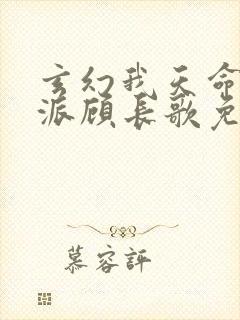 玄幻我天命
派顾长歌免
慕容评